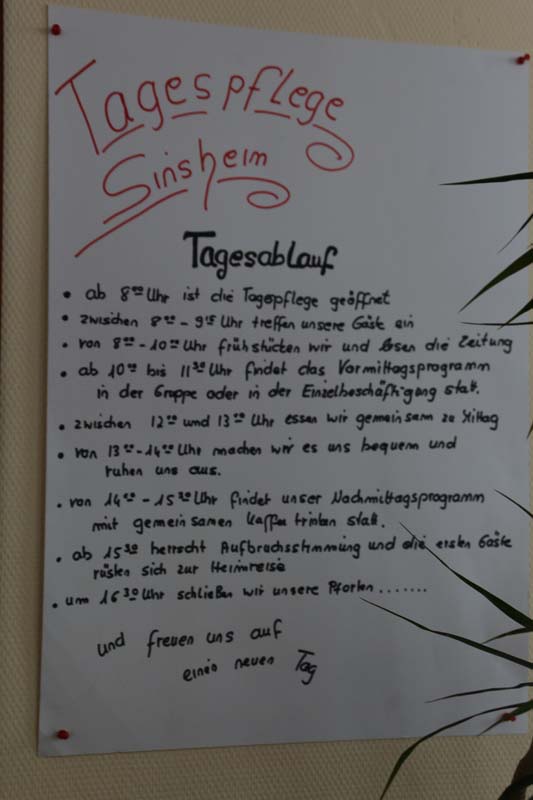 Tagespflege
Sinsheim
Tagesablauf
• ab 8⁰⁰ Uhr ist die Tagespflege geöffnet
• zwischen 8⁰⁰ - 9¹⁵ Uhr treffen unsere Gäste ein
• von 8⁰⁰ - 10⁰⁰ Uhr frühstücken wir und lesen die Zeitung
• ab 10⁰⁰ bis 11³⁰ Uhr findet das Vormittagsprogramm
in der Gruppe oder in der Einzelbeschäftigung statt.
• zwischen 12⁰⁰ und 13⁰⁰ Uhr essen wir gemeinsam zu Mittag
• von 13⁰⁰ - 14⁰⁰ Uhr machen wir es uns bequem und
ruhen uns aus.
• von 14⁰⁰ - 15³⁰ Uhr findet unser Nachmittagsprogramm
mit gemeinsamen Kaffee trinken statt.
• ab 15³⁰ herrscht Aufbruchsstimmung und die ersten Gäste
rüsten sich zur Heimreise
• um 16³⁰ Uhr schließen wir unsere Pforten .......
und freuen uns auf
einen neuen Tag